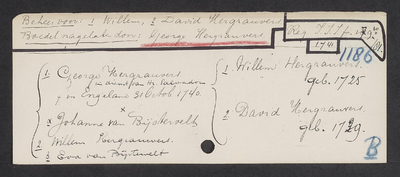 Beheer voor: 1 Willem, 2 David Hergrauvers
Boedel nagelaten door: George Hergrauvers
Reg.
1741
1186
1. George Hergrauvers
in Engeland 31 Octob. 1740.
x
Johanna van Bijstervelt
2 Willem Hergrauvers.
3 Eva van Bijstervelt
1. Willem Hergrauvers.
geb. 1725
2. David Hergrauvers
geb. 1729.
B